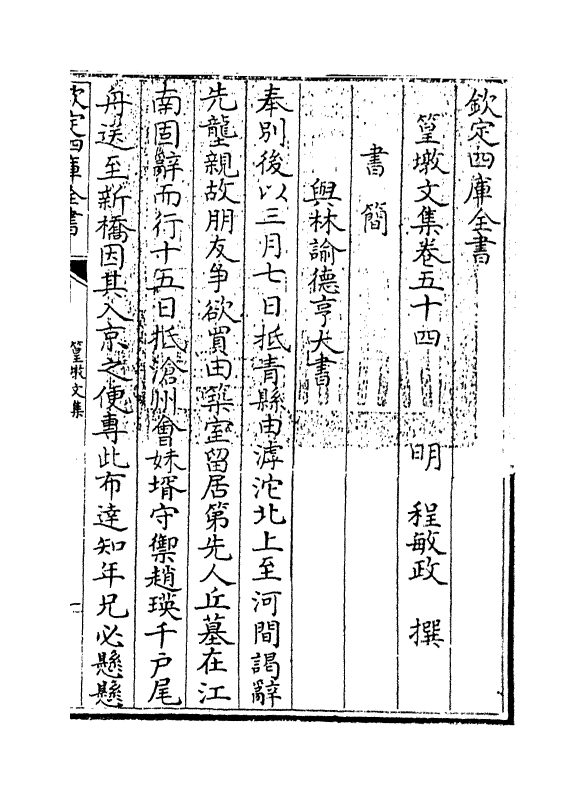 欽定四庫全書
篁墩文集卷五十四　明　程敏政　撰
書簡
與林諭德亨大書
奉別後以三月七日抵青縣由滹沱北上至河間謁辭
先壟親故朋友争欲買田築室留居第先人丘墓在江
南固辭而行十五日抵滄州會妹壻守禦趙瑛千戶尾
舟送至新橋因其入京之便專此布達知年兄必懸懸
欽定四庫全書
篁墩文集
一